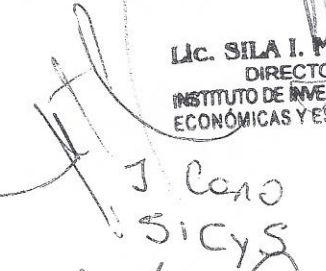 Lic. SILA I. M
DIRECTO
INSTITUTO DE INVE
ECONÓMICAS Y ES
J Cano
SiCyS